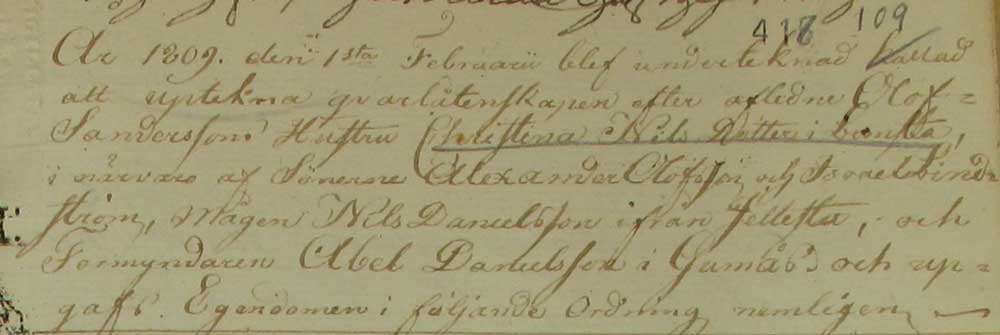 418 109
År 1809. den 1sta Februarii blef underteknad kallad
att uptekna qvarlåtenskapen efter afledne Olof
Sanderssons Hustru Christina Nils Dotter i
i närvaro af Sönerne Alexander Olofsson och Israel Lind-
ström, Mågen Nils Danielsson ifrån och
Formyndaren Abel Danielsson i Gumås och up-
gafs Egendomen i följande Ordning nemligen